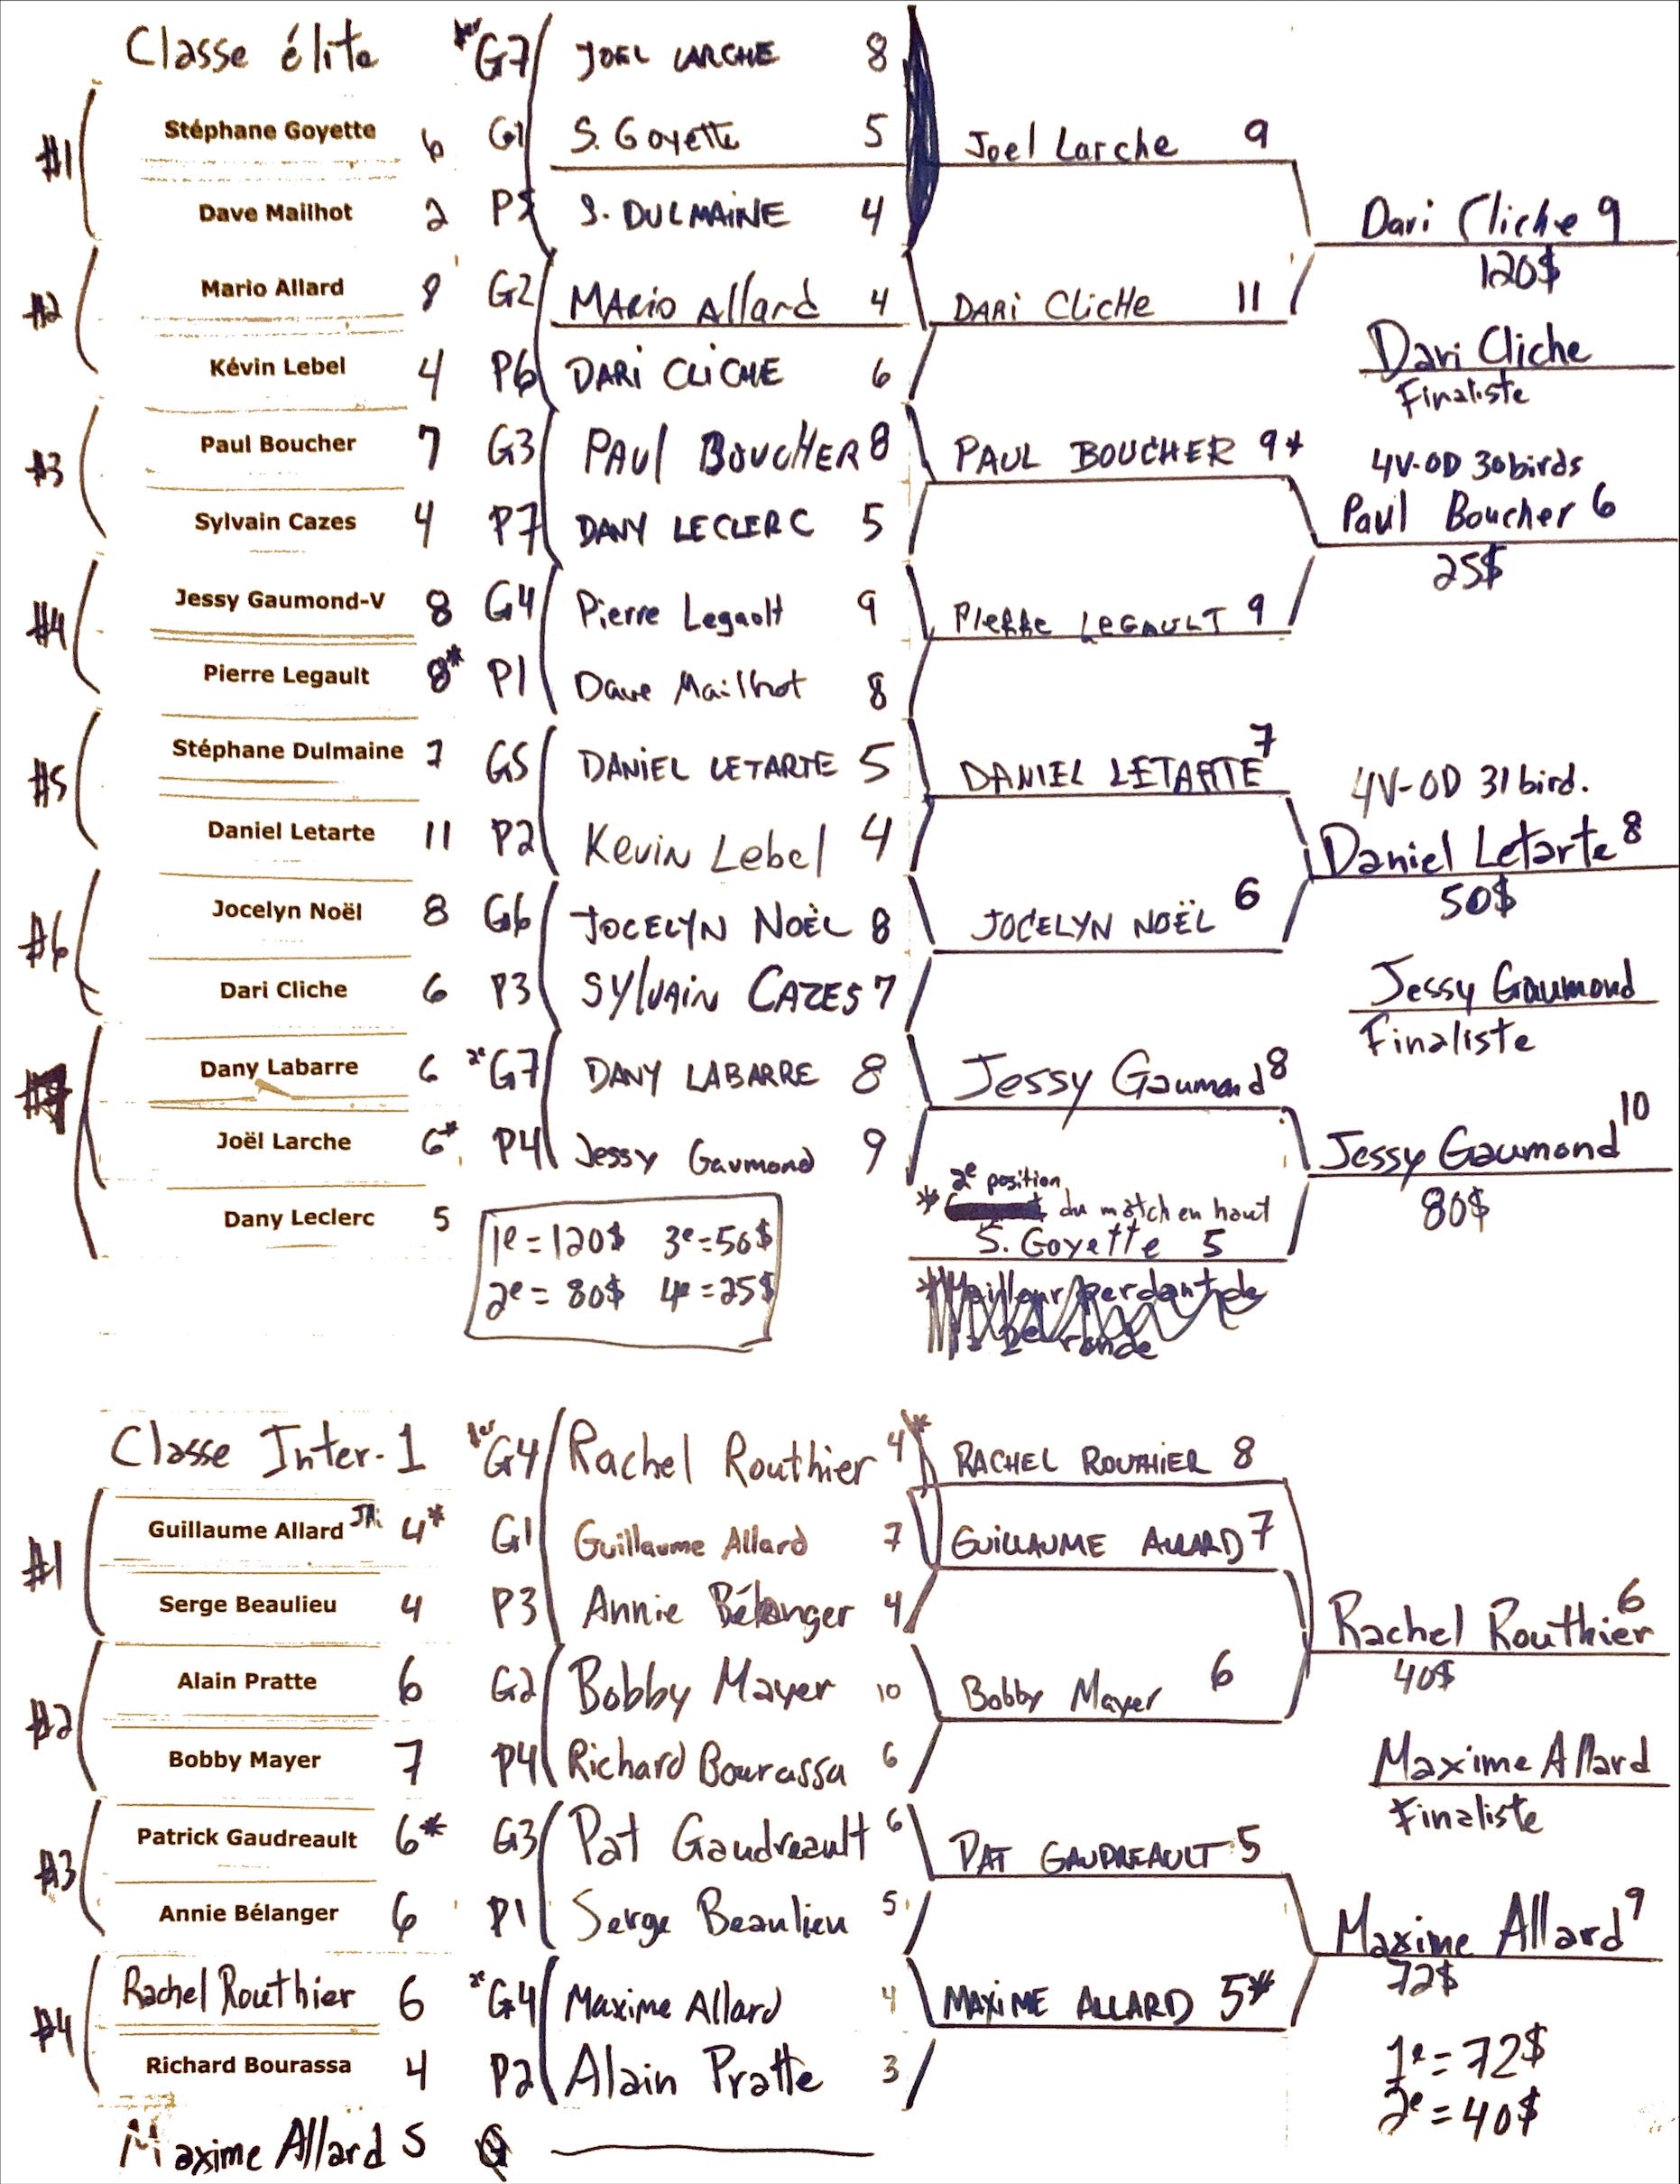 Classe élite
#1
Stéphane Goyette 6
Dave Mailhot 2
#2
Mario Allard 8
Kévin Lebel 4
#3
Paul Boucher 7
Sylvain Cazes 4
#4
Jessy Gaumond-V 8
Pierre Legault 8*
#5
Stéphane Dulmaine 7
Daniel Letarte 11
#6
Jocelyn Noël 8
Dari Cliche 6
Dany Labarre 6
Joël Larche 6*
Dany Leclerc 5
1er G7 JOEL LARCHE 8
G1 S. Goyette 5
P5 S. DULMAINE 4
G2 MARio Allard 4
P6 DARi CLiCHE 6
G3 PAUl BOUCHER 8
P7 DANY LECLERC 5
G4 Pierre Legault 9
P1 Dave Mailhot 8
G5 DANiEL LETARTE 5
P2 Kevin Lebel 4
G6 JOCELYN NOËL 8
P3 SYlVAiN CAZES 7
2e G7 DANY LABARRE 8
P4 Jessy Gaumond 9
1e = 120$ 3e = 50$
2e = 80$ 4e = 25$
Joel Larche 9
DARi CliCHe 11
PAUL BOUCHER 9*
PIeRRe LeGAULT 9
DANIEL LETARTE 7
JOCELYN NOËL 6
Jessy Gaumond 8
* 2e position
du match en haut
S. Goyette 5
Dari Cliche 9
120$
Dari Cliche
Finaliste
4V-OD 30birds
Paul Boucher 6
25$
4V-OD 31bird.
Daniel Letarte 8
50$
Jessy Gaumond
Finaliste
Jessy Gaumond 10
80$
Classe Inter-1
#1
Guillaume Allard 4*
Serge Beaulieu 4
#2
Alain Pratte 6
Bobby Mayer 7
#3
Patrick Gaudreault 6*
Annie Bélanger 6
#4
Rachel Routhier 6
Richard Bourassa 4
Maxime Allard 5
1er G4 Rachel Routhier 4*
G1 Guillaume Allard 7
P3 Annie Bélanger 4
G2 Bobby Mayer 10
P4 Richard Bourassa 6
G3 Pat Gaudreault 6
P1 Serge Beaulieu 5
2e G4 Maxime Allard 4
P2 Alain Pratte 3
RACHEL ROUTHIER 8
GUiLLAUME ALLARD 7
Bobby Mayer 6
PAT GAUDREAULT 5
MAXiME ALLARD 5*
Rachel Routhier 6
40$
Maxime Allard
Finaliste
Maxime Allard 9
72$
1e = 72$
2e = 40$